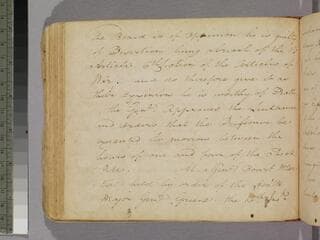 The Board is of Oppinion he is guilty
of Desertion being a breach of the
Article Section of the Articles of
War, and do therefore give it as
their oppinion he is worthy of Death
the Genl. Approves the Sentence
and orders that the Prisoner be
executed to morrow between the
hours of one and four of the Clock
At a Genl. Court Mar
tial held by order of the Honble
Major Genl. Greene the